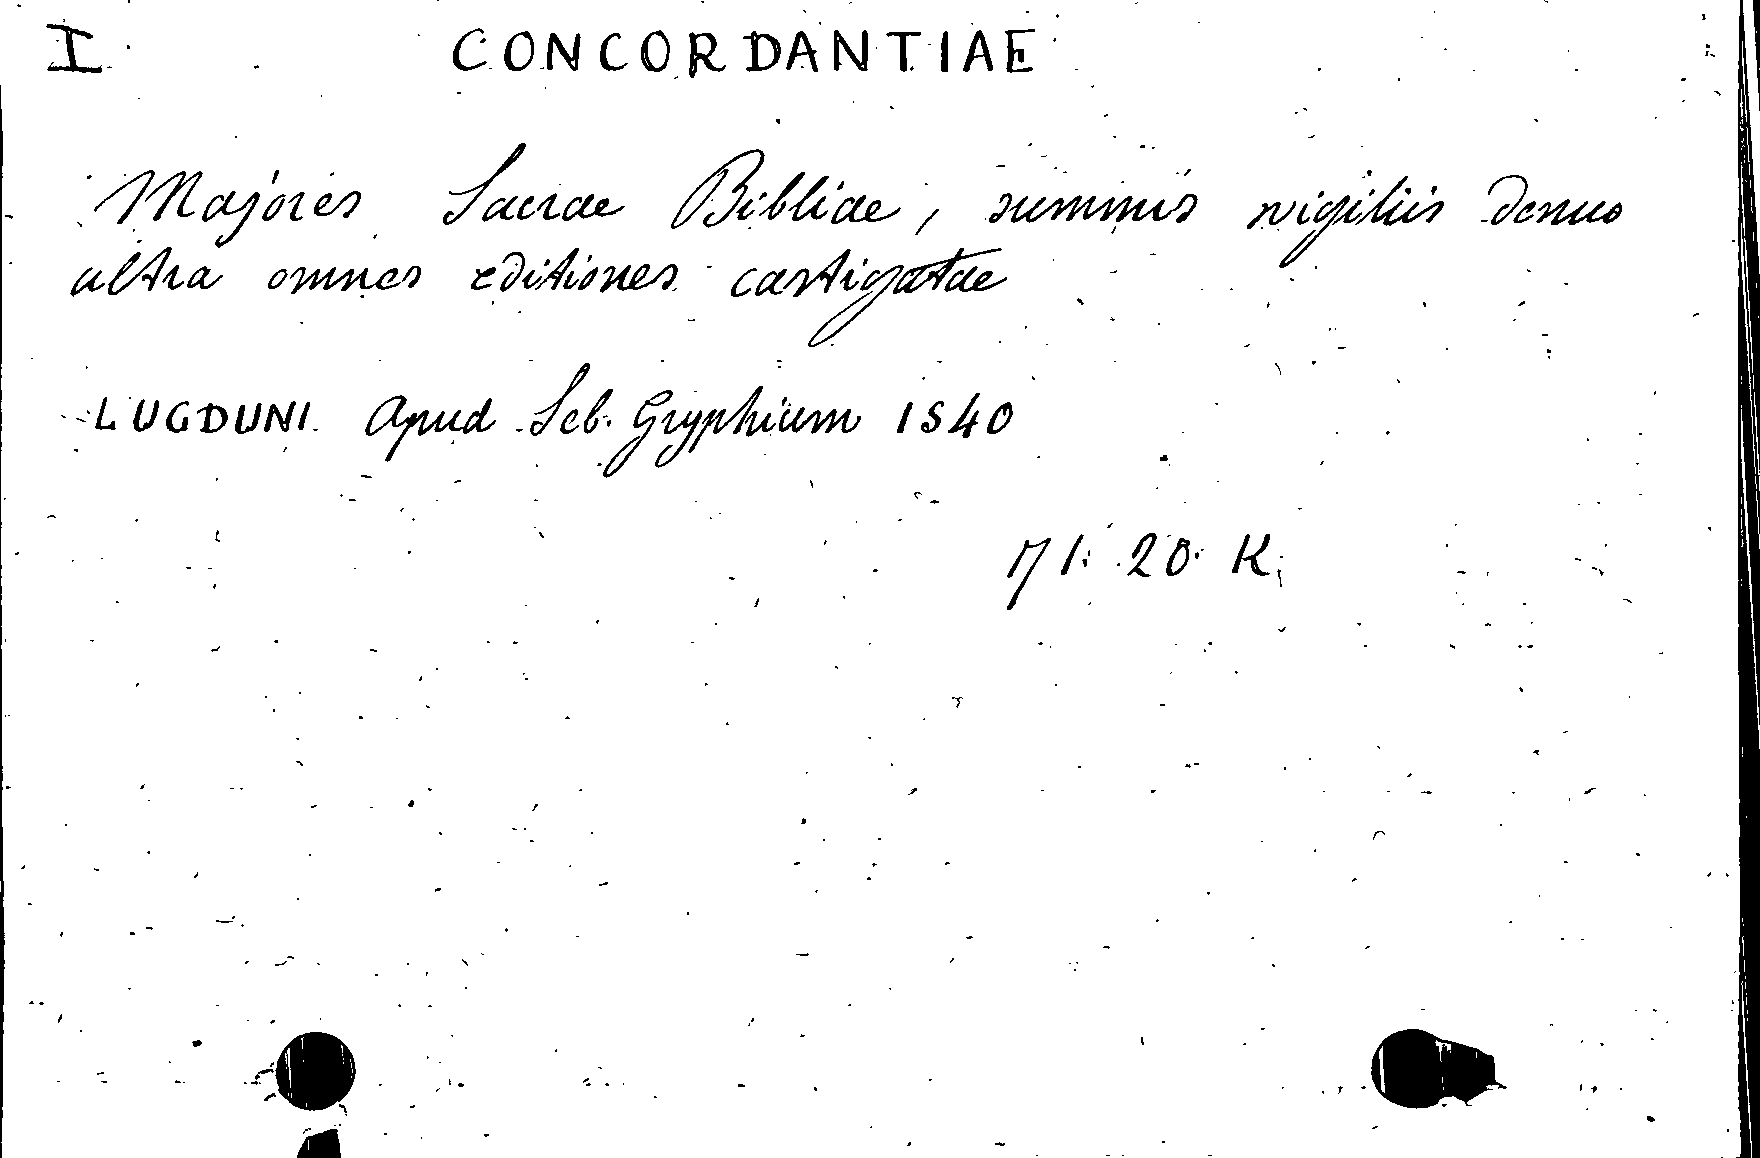 I CONCORDANTIAE
Majores Sacrae Bibliae, summis vigiliis denuo
ultra omnes editiones castigatae
LUGDUNI Apud Seb. Gryphium 1540
71. 20. K.